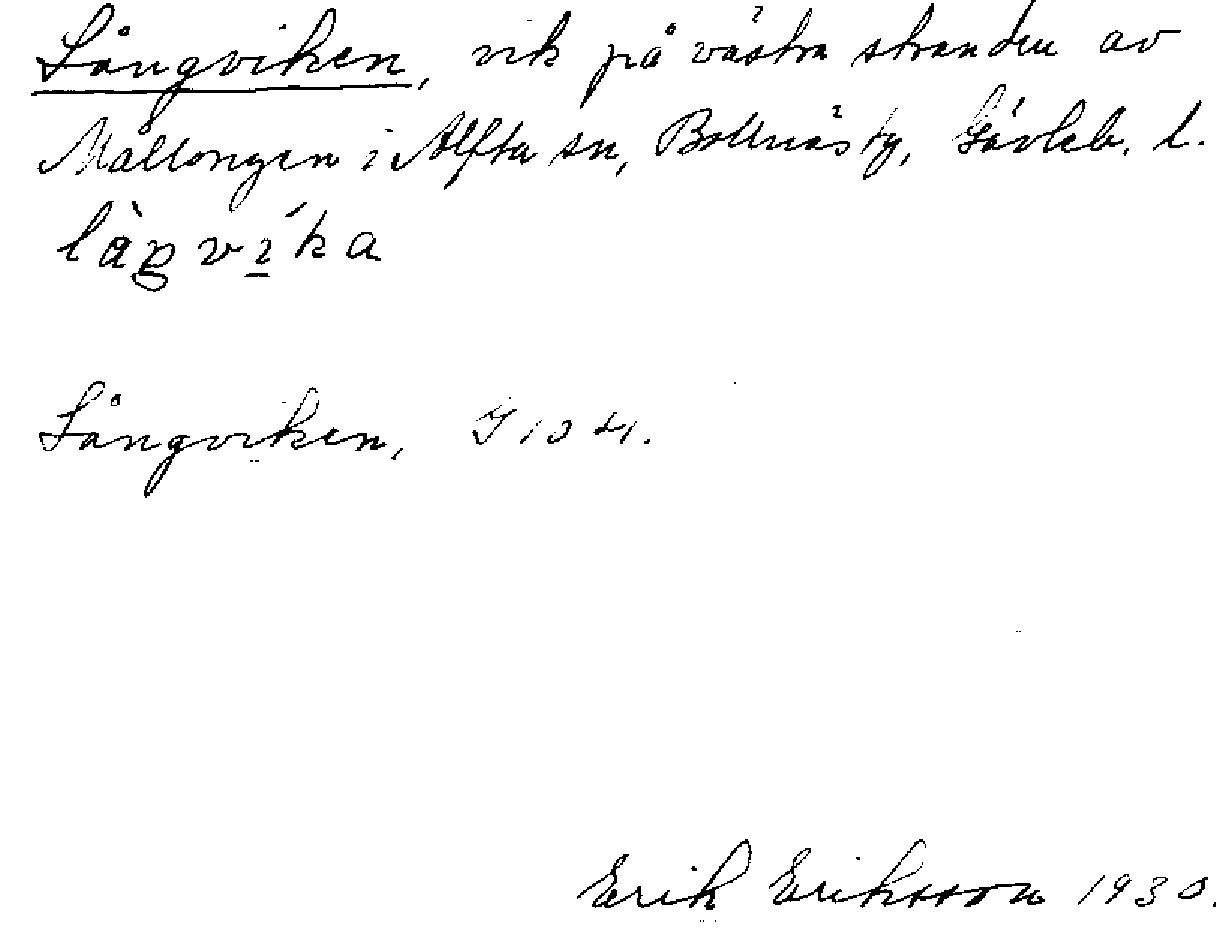 Långviken, vik på västra stranden av
Mållongen i Alfta sn, Bollnäs tg, Gävleb. l.
làŋví̲ka
Långviken, G 104.
Erik Eriksson 1930.